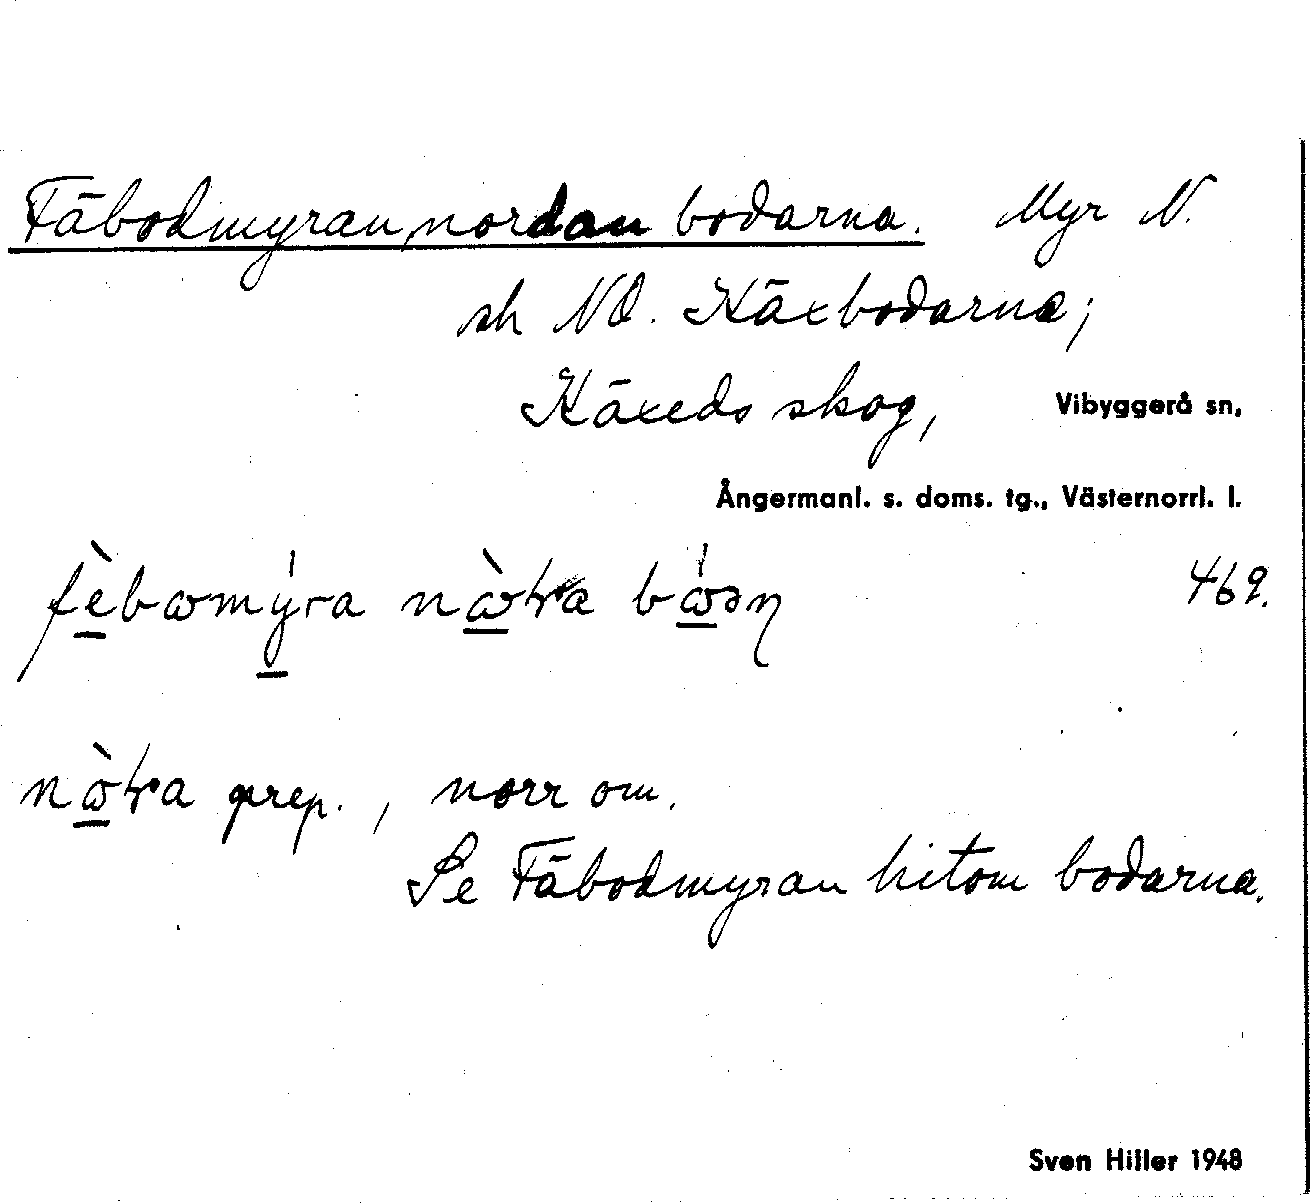 Fäbodmyran, nordan bodarna. Myr N.
sh NO. Käxbodarna;
Käxeds skog, Vibyggerå sn,
Ångermanl. s. doms. tg., Västernorrl. l.
fèbɷmýra nɷ̀tra bɷ́ən 469.
nɷ̀tra prep., norr om.
Se Fäbodmyran hitom bodarna.
Sven Hiller 1948